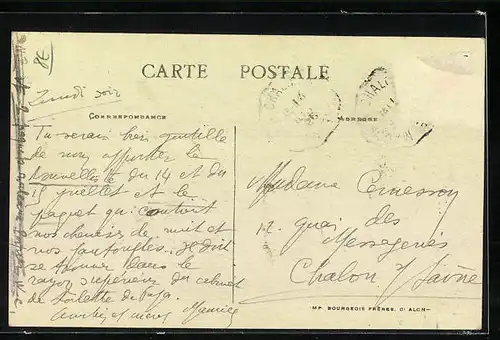 CARTE POSTALE
CORRESPONDANCE
ADRESSE
Lundi soir
Tu serais bien gentille
de nous apporter les
Nouvelles du 14 et du
15 juillet et le
paquet qui contient
nos chemises de nuit et
nos pantoufles. Il doit
se trouver dans le
rayon supérieur du cabinet
de toilette de Papa.
Maurice
Madame
12 quai des
Messageries
Chalon s/ Saône
IMP. BOURGEOIS FRÈRES, CHALON-